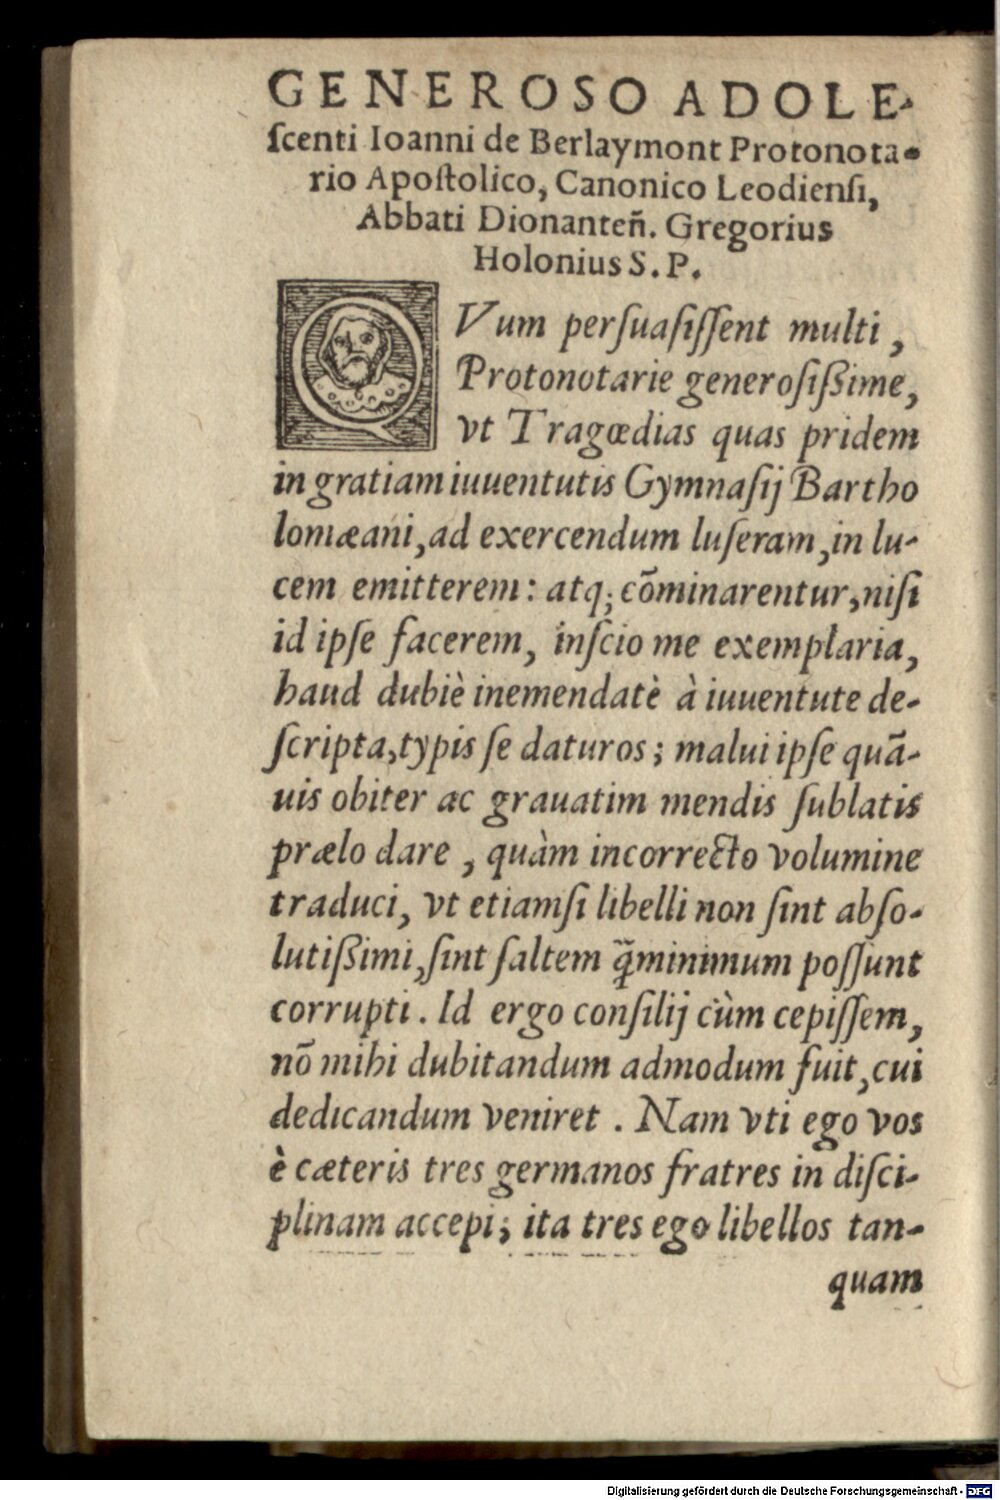 GENEROSO ADOLE-
ſcenti Ioanni de Berlaymont Protonota-
rio Apoſtolico, Canonico Leodienſi,
Abbati Dionanteñ. Gregorius
Holonius S. P.
QVum perſuaſiſſent multi,
Protonotarie generoſiſsime,
vt Tragœdias quas pridem
in gratiam iuuentutis Gymnaſij Bartho
lomæani, ad exercendum luſeram, in lu-
cem emitterem: atq; cōminarentur, niſi
id ipſe facerem, inſcio me exemplaria,
haud dubiè inemendatè à iuuentute de-
ſcripta, typis ſe daturos; malui ipſe quā-
uis obiter ac grauatim mendis ſublatis
prælo dare, quàm incorrecto volumine
traduci, vt etiamſi libelli non ſint abſo-
lutiſsimi, ſint ſaltem q̄minimum poſſunt
corrupti. Id ergo conſilij cùm cepiſſem,
nō mihi dubitandum admodum fuit, cui
dedicandum veniret. Nam vti ego vos
è cæteris tres germanos fratres in diſci-
plinam accepi; ita tres ego libellos tan-
quam
Digitalisierung gefördert durch die Deutsche Forschungsgemeinschaft - DFG